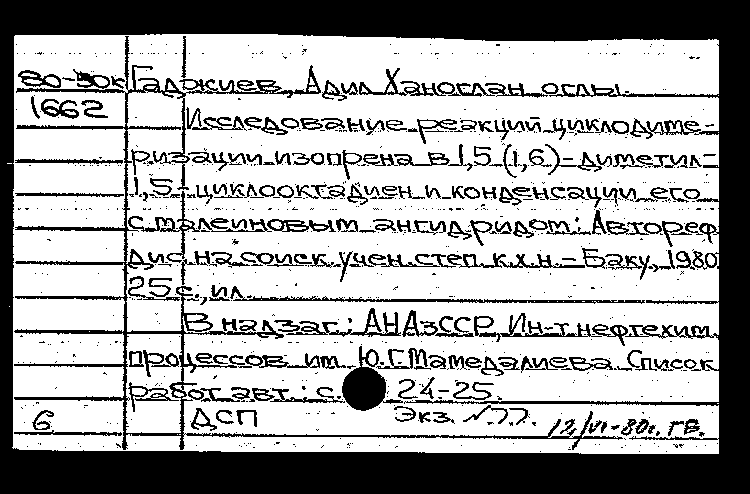 80-50к Гаджиев, Адил Ханоглан оглы.
1662 Исследование реакций циклодиме-
ризации изопрена в 1,5 (1,6)-диметил-
1,5-циклооктадиен и конденсации его
с малеиновым ангидридом: Автореф
дис. на соиск. учен. степ. к.х.н. - Баку, 1980
25 с., ил.
В надзаг.: АН АзССР, Ин-т нефтехим.
процессов им. Ю.Г. Мамедалиева. Список
работ авт.: с. 24-25.
6 ДСП Экз. № 77. 12/VI-80г. ГБ.